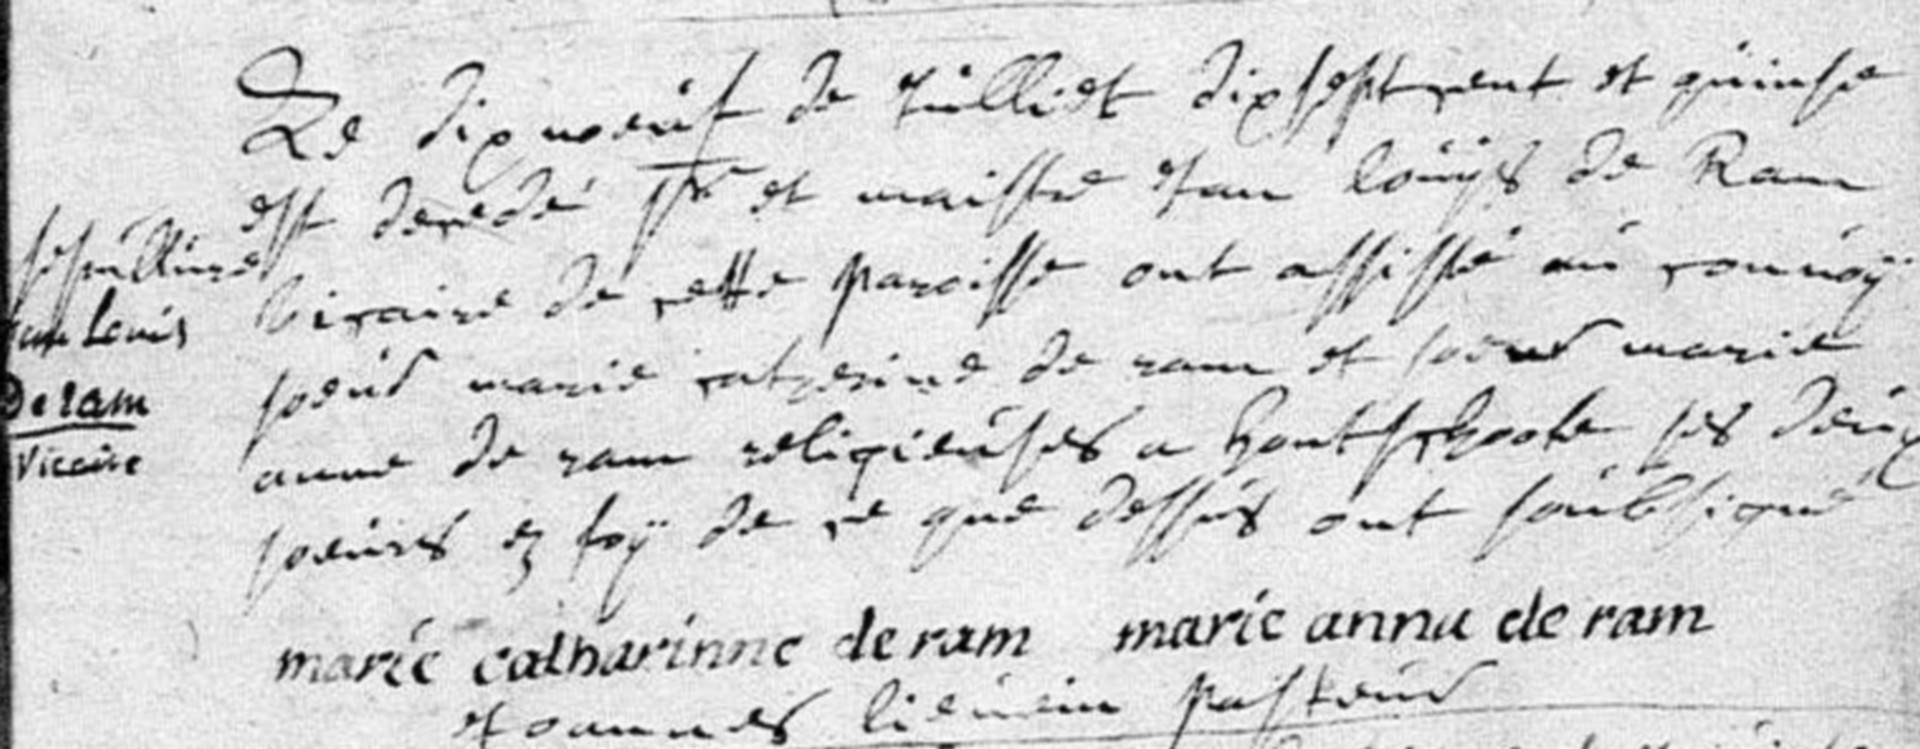 Le dix noeuf de Juilliet dix sept cent et quinse
est decedé Sr et maistre Jan loüys de Ram
vicaire de cette paroisse ont assisté au convoÿ
soeur marie catherine de ram et soeur marie
anne de ram religieuses a hontschoote ses deux
soeurs ez foÿ de ce que dessus ont soubsigné
marie catharinne de ram marie anna de ram
Joannes lieuein pasteur
sepulture
Jan Louis
De ram
Vicaire